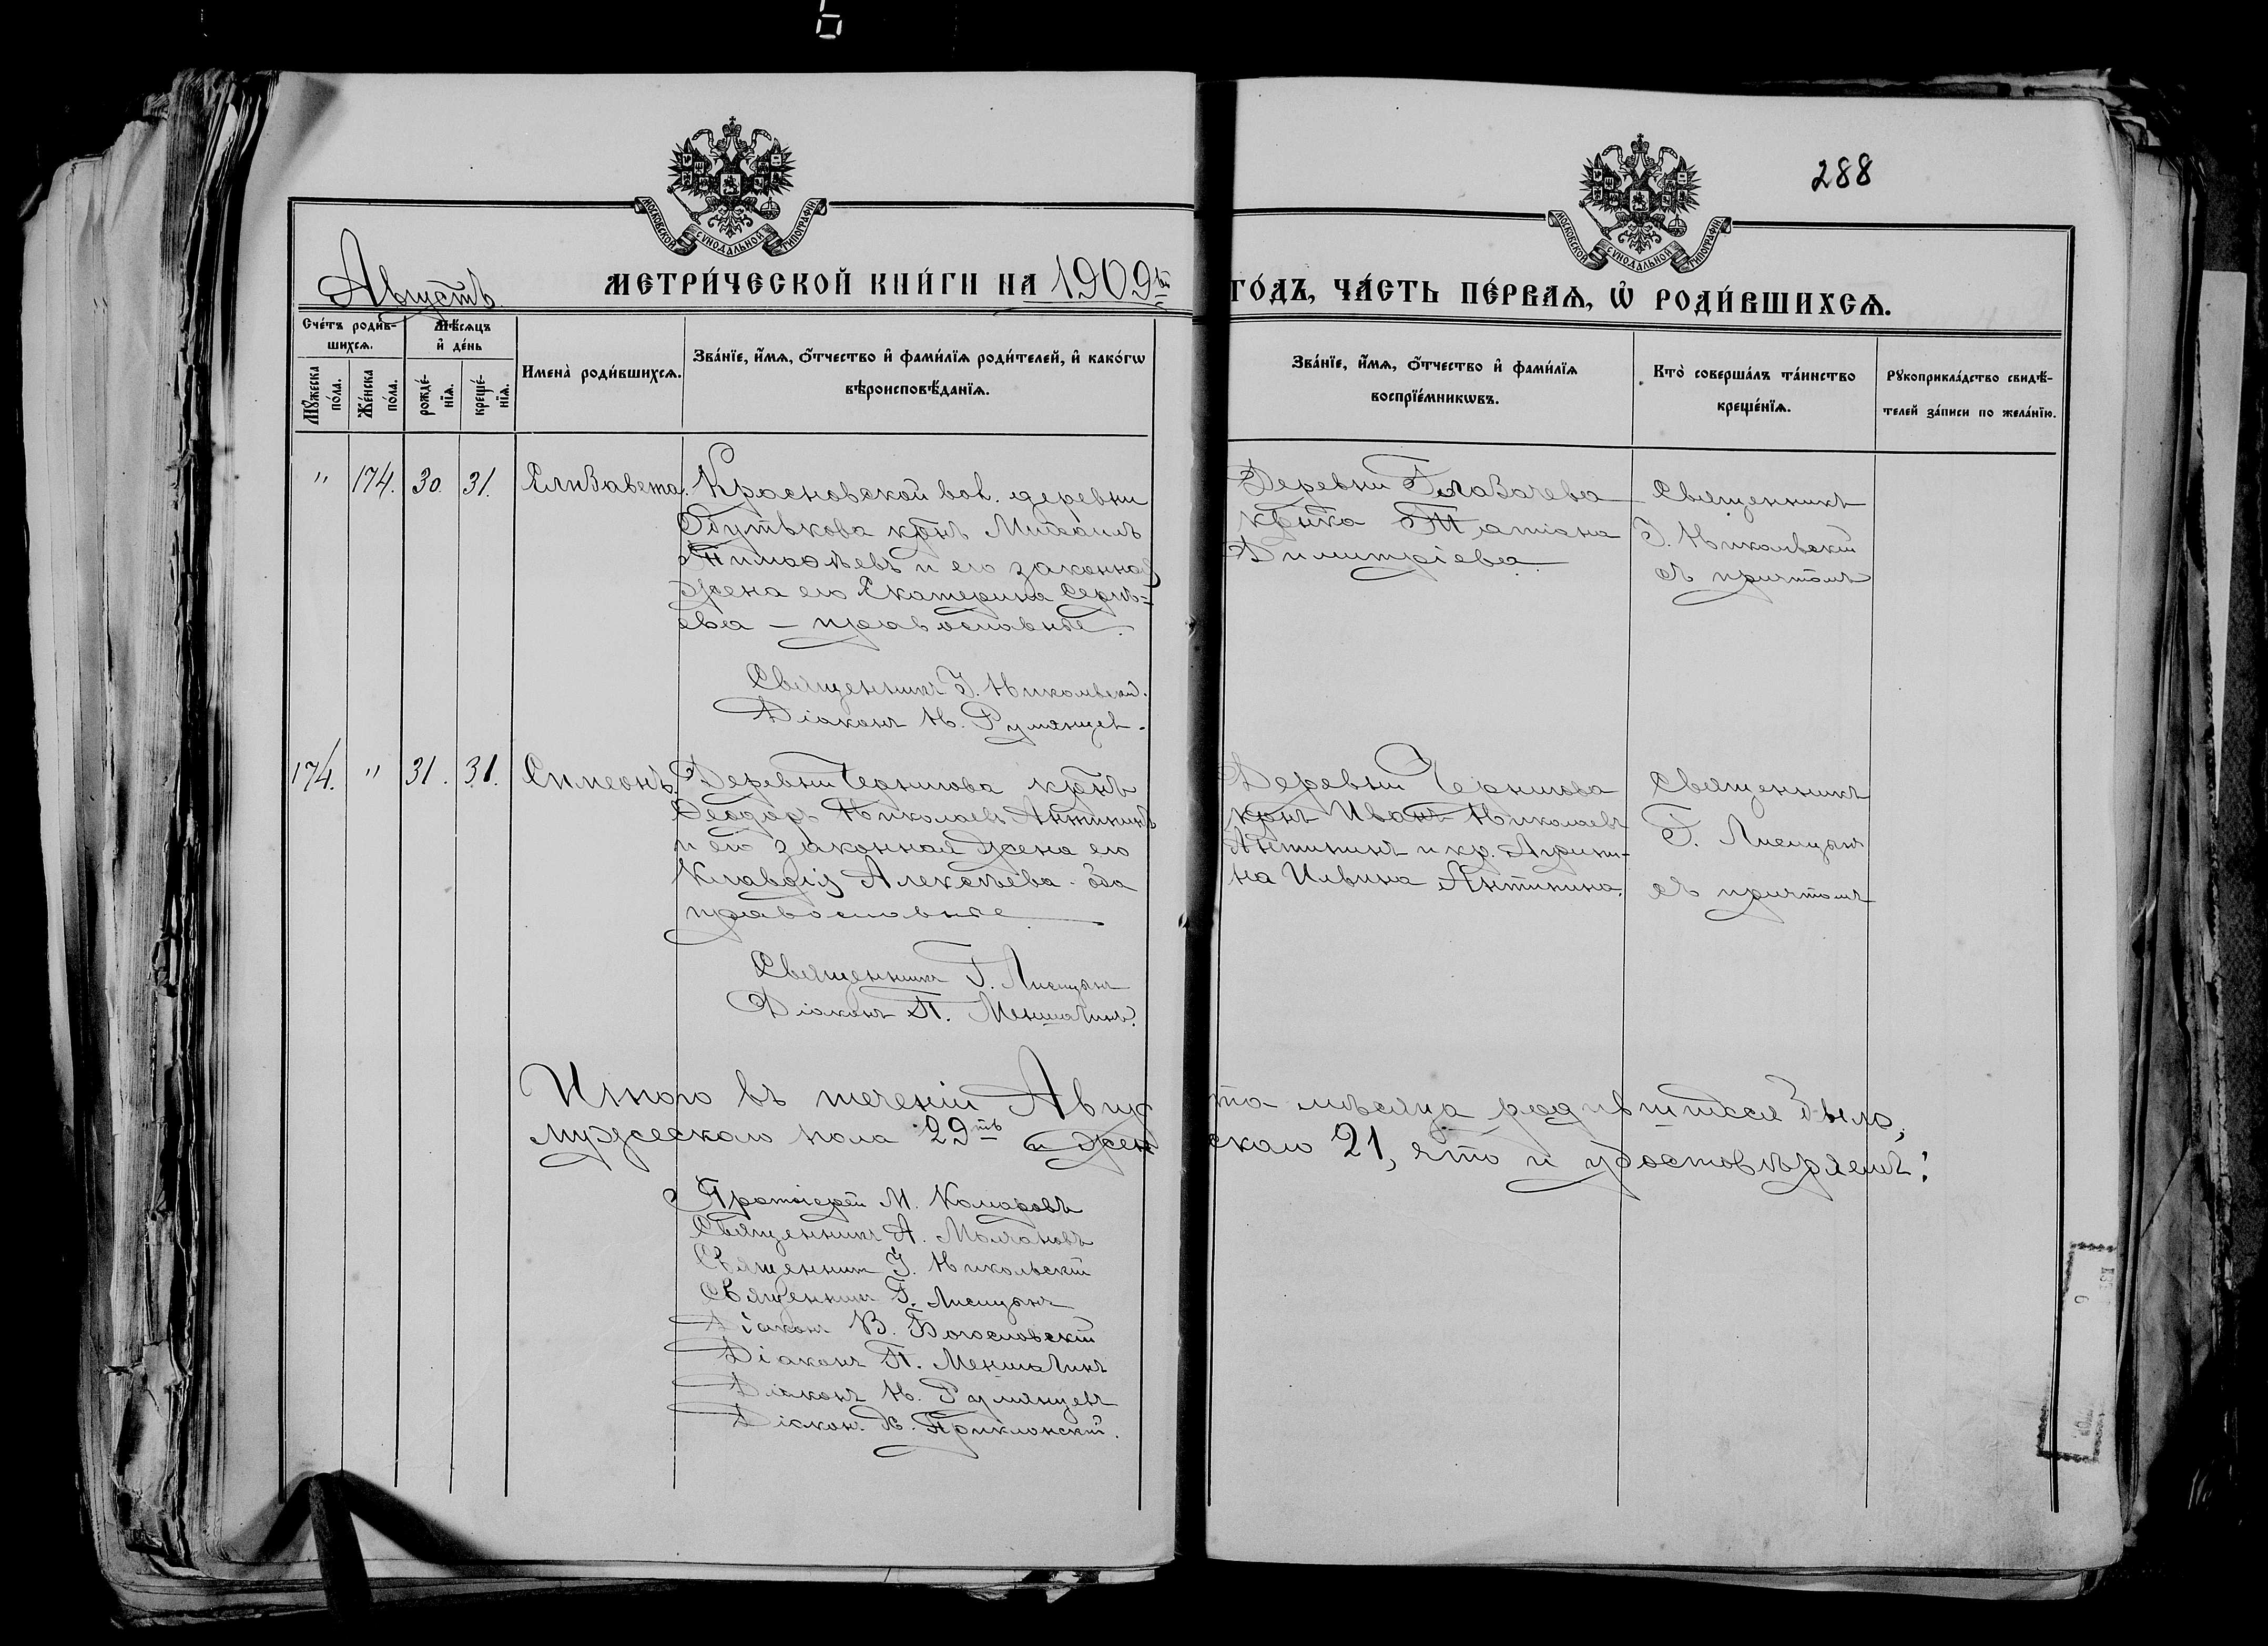 288
МОСКОВСКОЙ СѴНОДАЛЬНОЙ ТИПОГРАФІИ
МОСКОВСКОЙ СѴНОДАЛЬНОЙ ТИПОГРАФІИ
Августъ.
МЕТРИ́ЧЕСКОЙ КНИ́ГИ НА 1909й ГО́ДЪ, ЧА́СТЬ ПЕ́РВАѦ, Ѡ҆ РОДИ́ВШИХСѦ.
Сче́тъ роди́в-
шихсѧ.
Мѣ́сѧцъ
и҆ де́нь
Мꙋ́жеска
по́ла.
Же́нска
по́ла.
рожде́-
нїѧ.
креще́-
нїѧ.
Имена̀ роди́вшихсѧ.
Зва́нїе, и҆́мѧ, ѻ҆́тчество и҆ фами́лїѧ роди́телей, и҆ како́гѡ
вѣроисповѣ́данїѧ.
Зва́нїе, и҆́мѧ, ѻ҆́тчество и҆ фами́лїѧ
воспрїе́мникѡвъ.
Кто̀ соверша́лъ та́инство
креще́нїѧ.
Рꙋкоприкла́дство свидѣ́-
телей за́писи по жела́нїю.
" 174. 30. 31. Елизавета.
Красновской вол. деревни
кр҃нъ Михаилъ
Тимоѳѣевъ и его законная
жена его Екатерина Сергѣ-
ева — православные.
Священникъ І. Никольскій.
Діаконъ Н. Румянцев.
Деревни Глазачева
кр҃нка Татіана
Димитріева
Священникъ
І. Никольскій
съ причтомъ
174. " 31. 31. Симеонъ.
Деревни кр҃нъ
Ѳеодоръ Николаевъ Антипинъ
и его законная жена его
Клавдія Алексѣева. оба
православные
Священникъ Г. Лисицынъ
Діаконъ П. Меншагинъ.
Деревни
кр҃нъ Иванъ Николаевъ
Антипинъ и кр. Агрипи-
на Ильина Антипина.
Священникъ
Г. Лисицынъ
съ причтомъ
Итого въ теченіи Августа мѣсяца родившихся было,
мужескаго пола 29ть и женскаго 21, что и удостовѣряемъ:
Протоіерей М. Комаровъ
Священникъ А. Молчановъ
Священник І. Никольскій
Священник Г. Лисицынъ
Діакон В. Богословскій
Діаконъ П. Меншагинъ
Діаконъ Н. Румянцевъ
Діакон Приклонскій.